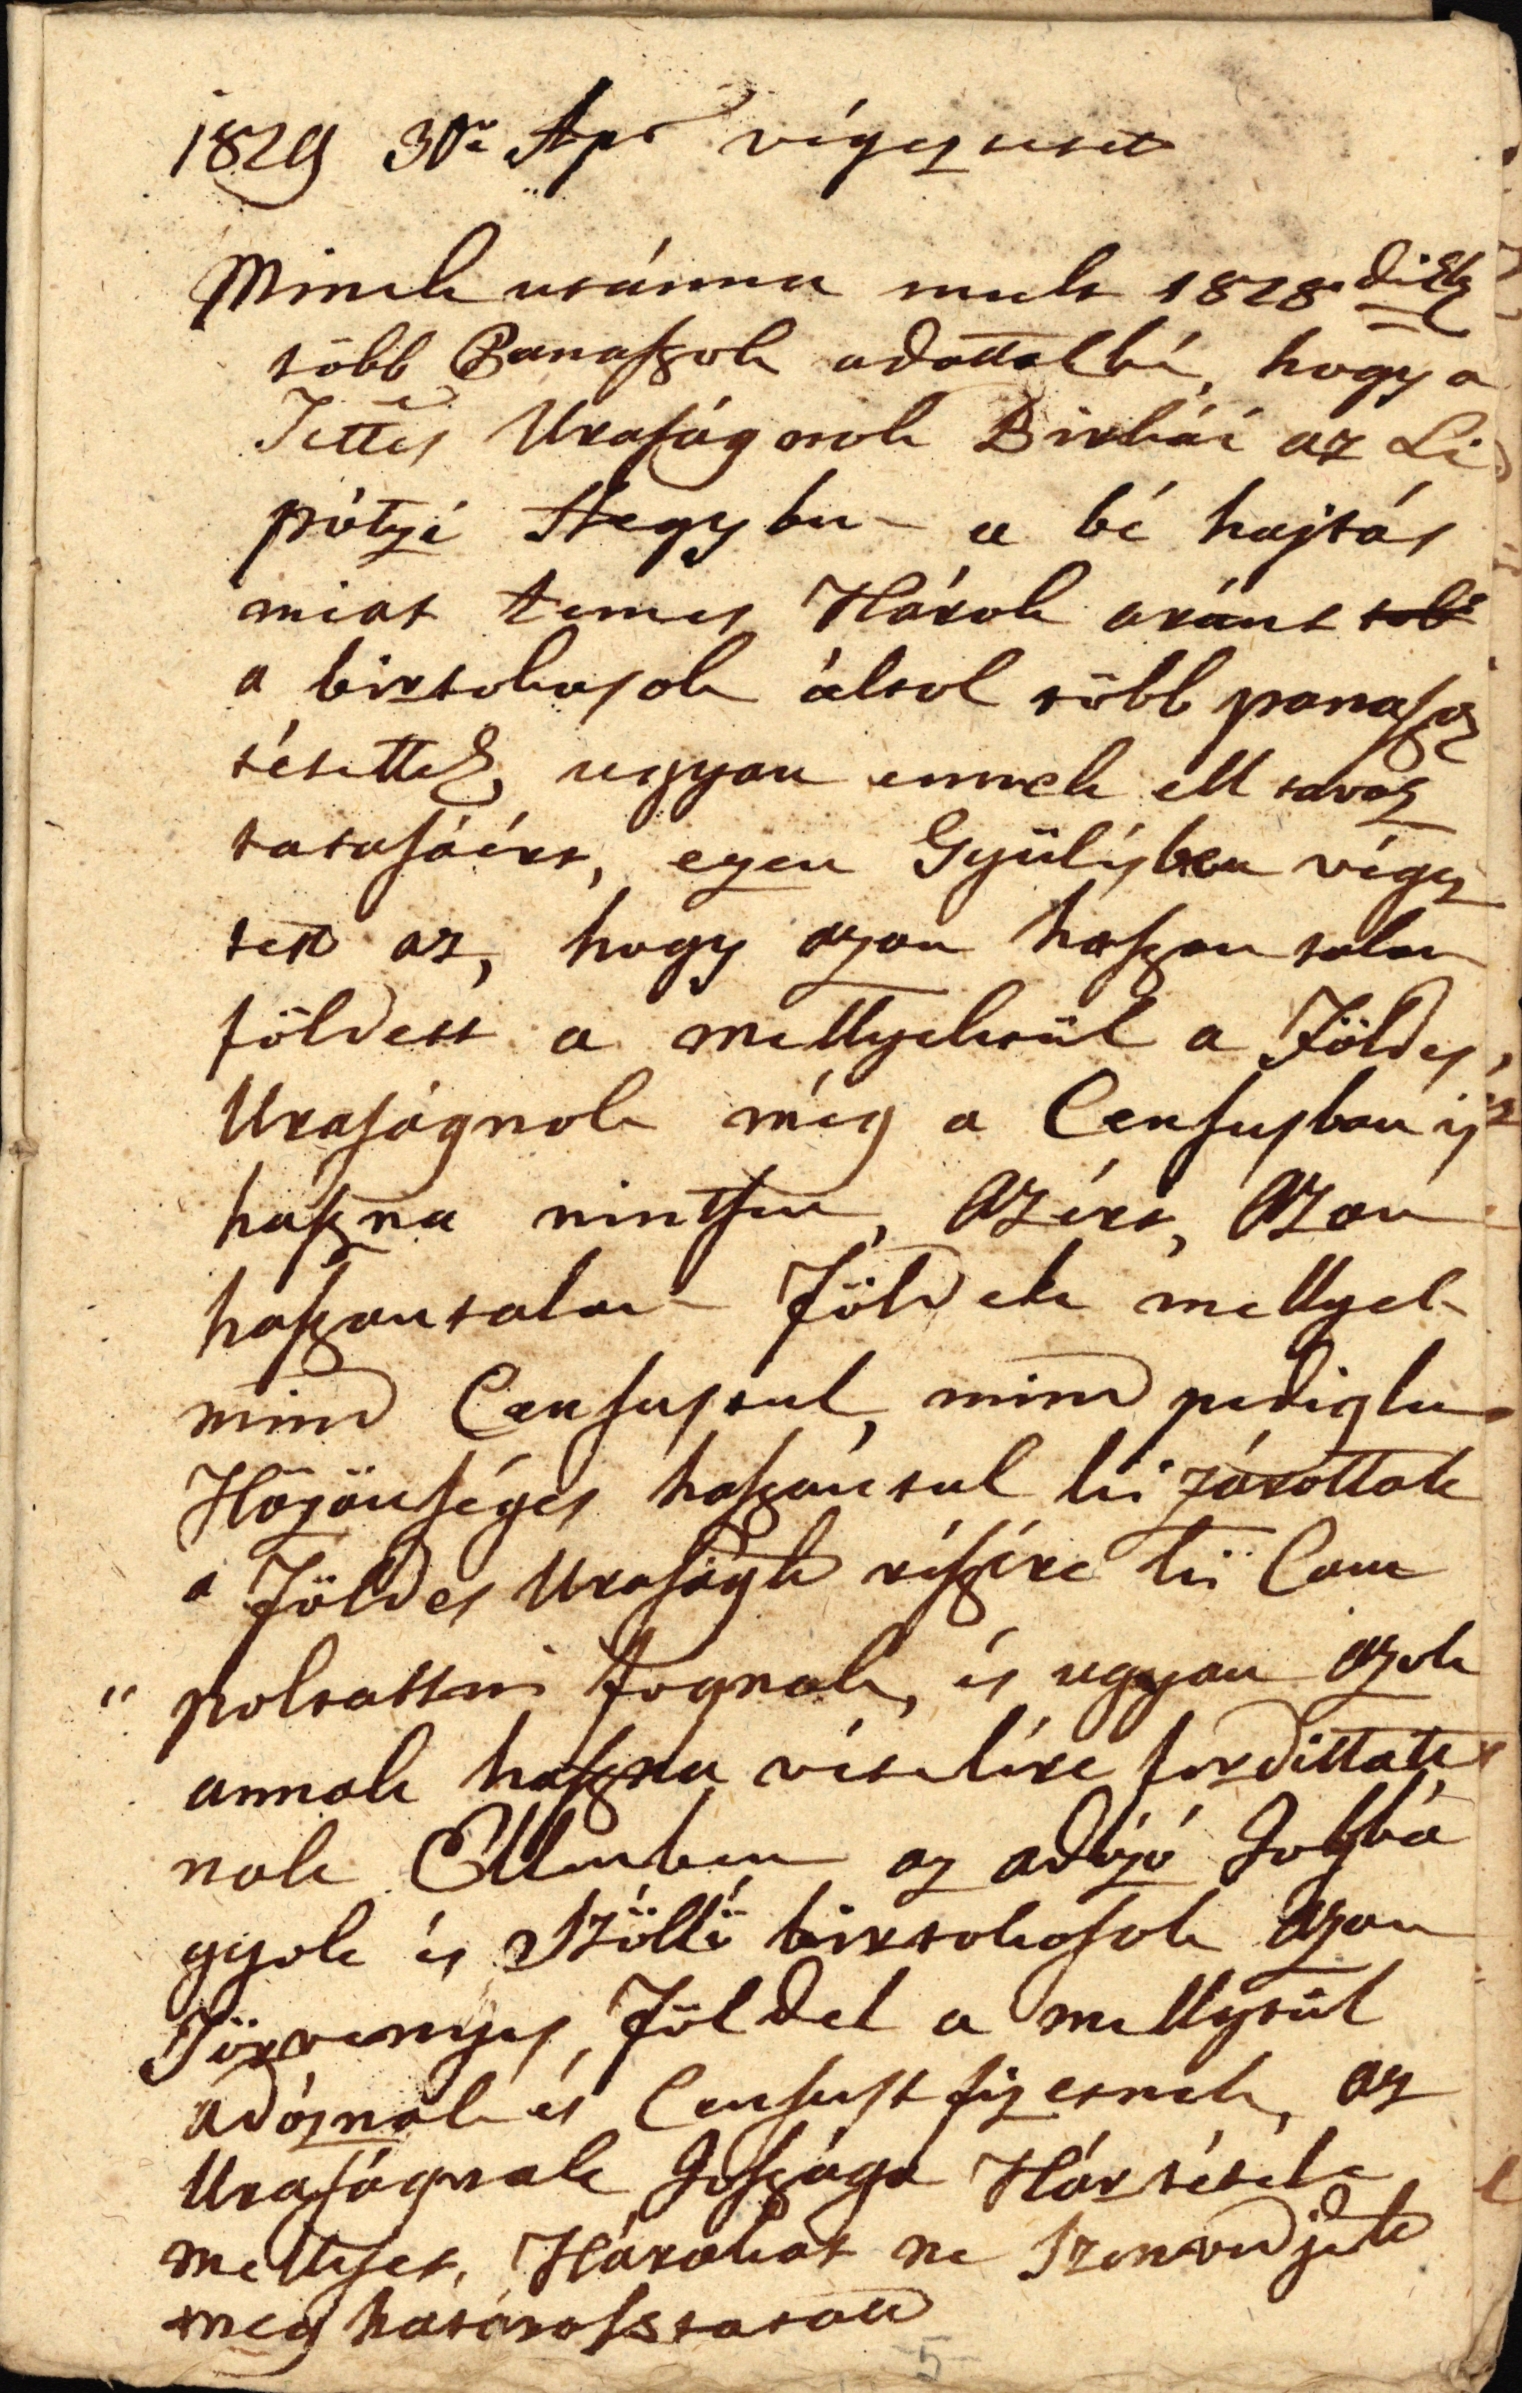 1829 30a Apr végeztetet
Minek utánna mult 1828dik
több Panaszok adattatbé, hogy a
Tettes Uraságnok Birkái az Li
pótzi Hegyben a bé hajtás
miat temes Károk aránt
a birtokosok által több panasz
tétetted, ugyan ennek ell távoz
tatásáért, ezen Gyülésben végez
tett az, hogy azon haszon talan
földekt a mellyekrül a Földes
Uraságnok még a Censusban is
haszna nintsen, Azért, Azon
haszontalan Földek mellyek
mind Censussul, mind pediglen
Közönséges haszonsul ki zárottak
a Földes Uraságh részére kü Com
poltattni fognak, és ugyan azok
annak haszna vételére fordittat
nak Ellenben az adózó Jobbá
gyok és Szöllö birtokosok azon
Törvenyes Földel a mellytül
adóznak és Censust fizetnek, az
Uraságnak Joszága Kártétele
mellyet, Károkat ne Szenvedjék
meg határosztatott
5